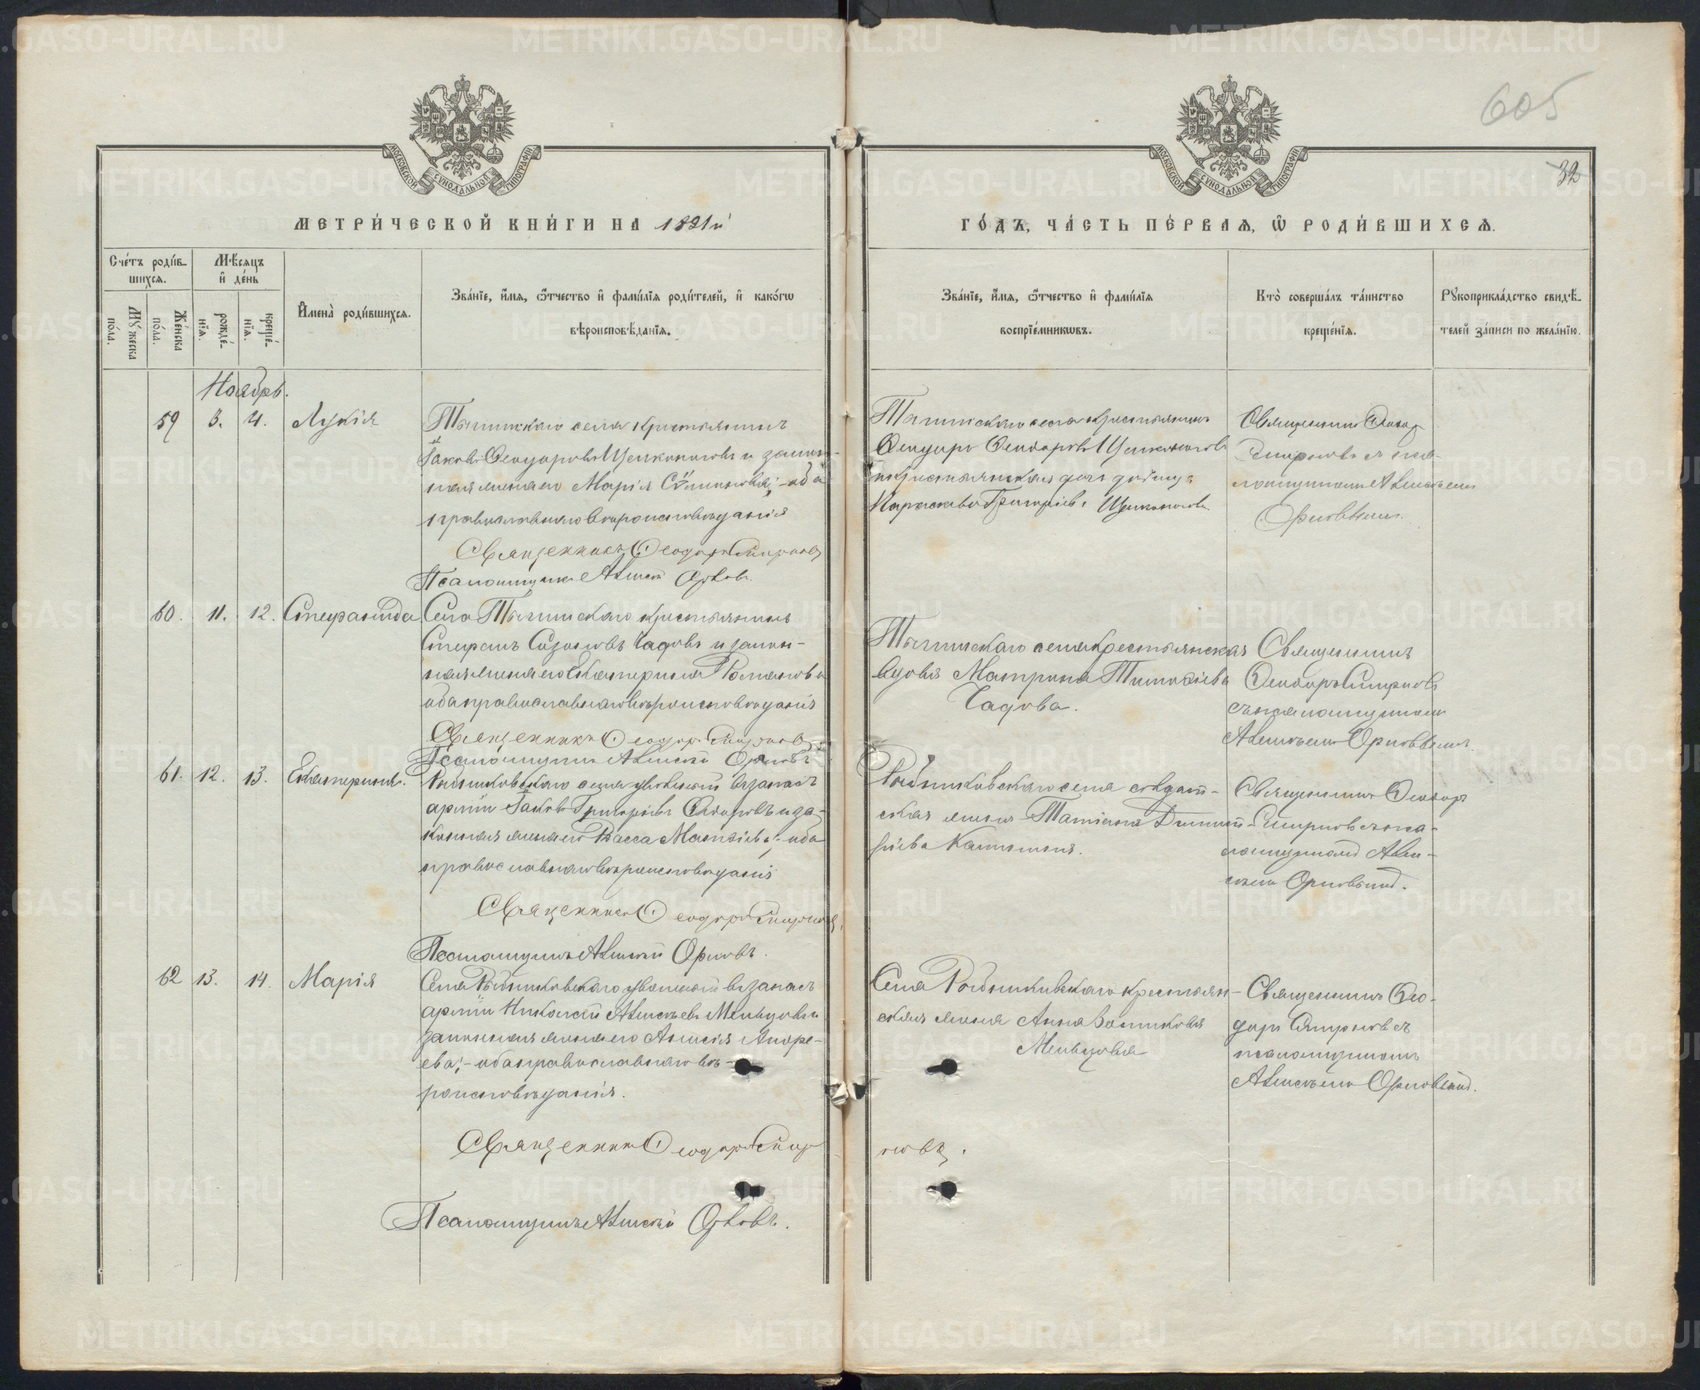 605
32
МОСКОВСКОЙ СѴНОДАЛЬНОЙ ТИПОГРАФІИ
МОСКОВСКОЙ СѴНОДАЛЬНОЙ ТИПОГРАФІИ
МЕТРИ́ЧЕСКОЙ КНИ́ГИ НА 1891й
ГО́ДЪ, ЧА́СТЬ ПЕ́РВАЯ, Ѽ РОДИ́ВШИХСѦ.
Сче́тъ роди́в-
шихсѧ.
Му́жеска по́ла.
Же́нска по́ла.
Мѣ́сяцъ
и҆ де́нь
рожде́нїѧ.
креще́нїѧ.
И҆мена̀ роди́вшихсѧ.
Зва́нїе, и҆́мѧ, ѻ҆́тчество и҆ фами́лїѧ роди́телей, и҆ како́гѡ
вѣроисповѣ́данїѧ.
Зва́нїе, и҆́мѧ, ѻ҆́тчество и҆ фами́лїѧ
воспрїе́мникѡвъ.
Кто̀ соверша́лъ та́инство
креще́нїѧ.
Рꙋкоприкла́дство свидѣ́-
телей за́писи по жела́нїю.
Ноябрь.
59 3. 4. Лукія
Тыгишскаго села крестьянинъ
Іаковъ Ѳеодоровъ и закон-
ная жена его Марія Симонова; оба
православнаго вѣроисповѣданія
Священникъ Ѳеодоръ Смирновъ
Псаломщикъ Алексѣй Орловъ.
Тыгишскаго села крестьянинъ
Ѳеодоръ Ѳеодоровъ
и крестьянская дочь дѣвица
Григоріева
Священникъ Ѳеодоръ
Смирновъ съ пса-
ломщикомъ Алексѣемъ
Орловымъ.
60. 11. 12. Стефанида
Села Тыгишскаго крестьянинъ
Стефанъ Созоновъ Чадовъ и закон-
ная жена его Екатерина Романова
оба православнаго вѣроисповѣданія
Священникъ Ѳеодоръ Смирновъ
Псаломщикъ Алексѣй Орловъ
Тыгишскаго села крестьянская
вдова Матрона Тимоѳіева
Чадова.
Священникъ
Ѳеодоръ Смирновъ
съ псаломщикомъ
Алексѣемъ Орловымъ.
61. 12. 13. Екатерина.
Рыбниковскаго села уволенный въ запасъ
арміи Іаковъ Григорьевъ и за-
конная жена его Васса Матѳіева; оба
православнаго вѣроисповѣданія
Священникъ Ѳеодоръ Смирновъ,
Псаломщикъ Алексѣй Орловъ.
Рыбниковскаго села солдат-
ская жена Татіана Димит-
ріева
Священникъ Ѳеодоръ
Смирновъ съ пса-
ломщикомъ Алек-
сѣемъ Орловымъ.
62 13. 14. Марія
Села Рыбниковскаго уволенный въ запасъ
арміи Николай Алексѣевъ Мельцовъ и
законная жена его Анисія Андре-
ева; оба православнаго вѣ-
роисповѣданія.
Священникъ Ѳеодоръ Смир
новъ.
Псаломщикъ Алексѣй Орловъ.
Села Рыбниковскаго крестьян-
ская жена Анна
Мельцова
Священникъ Ѳео-
доръ Смирновъ съ
псаломщикомъ
Алексѣемъ Орловымъ.
METRIKI.GASO-URAL.RU